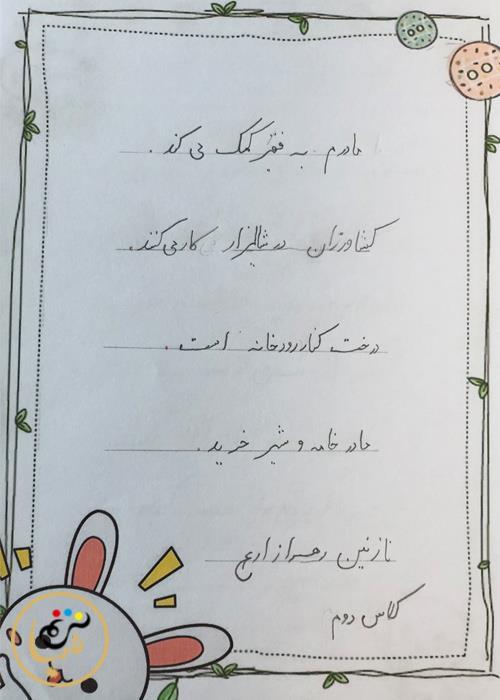 مادرم به فقیر کمک می کند.
کشاورزان در شالیزار کار می کنند.
درخت کنار رودخانه است.
مادر خامه و شیر خرید.
نازنین زهرا زارع
کلاس دوم